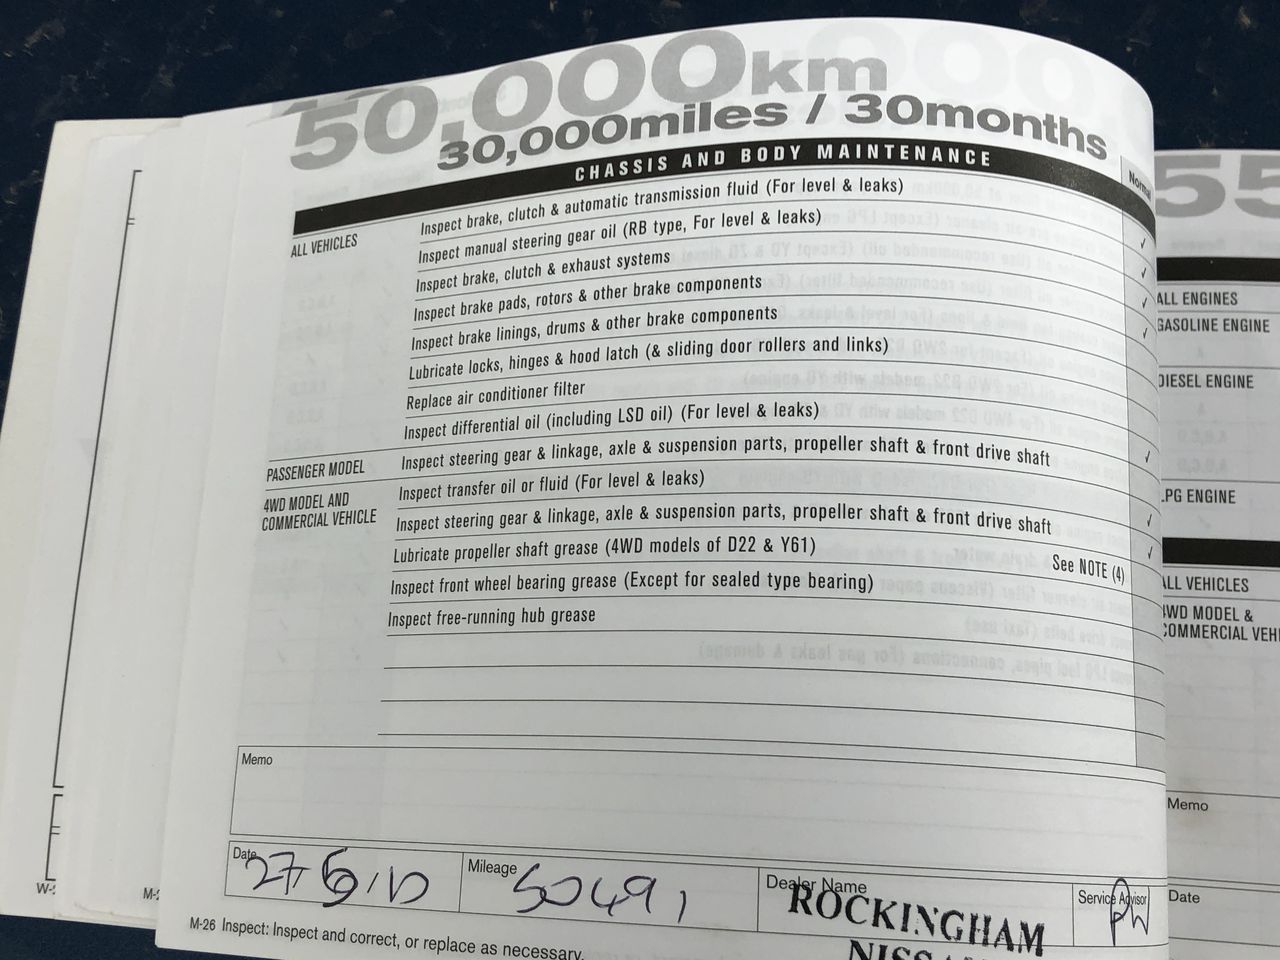 50,000km
30,000miles / 30months
CHASSIS AND BODY MAINTENANCE
ALL VEHICLES
Inspect brake, clutch & automatic transmission fluid (For level & leaks)
Inspect manual steering gear oil (RB type, For level & leaks)
Inspect brake, clutch & exhaust systems
Inspect brake pads, rotors & other brake components
Inspect brake linings, drums & other brake components
Lubricate locks, hinges & hood latch (& sliding door rollers and links)
Replace air conditioner filter
Inspect differential oil (including LSD oil) (For level & leaks)
PASSENGER MODEL
Inspect steering gear & linkage, axle & suspension parts, propeller shaft & front drive shaft
4WD MODEL AND
COMMERCIAL VEHICLE
Inspect transfer oil or fluid (For level & leaks)
Inspect steering gear & linkage, axle & suspension parts, propeller shaft & front drive shaft
Lubricate propeller shaft grease (4WD models of D22 & Y61)
See NOTE (4)
Inspect front wheel bearing grease (Except for sealed type bearing)
Inspect free-running hub grease
Memo
Date
Mileage 50491
Dealer Name
ROCKINGHAM
Service Advisor
M-26 Inspect: Inspect and correct, or replace as necessary.
55
ALL ENGINES
GASOLINE ENGINE
DIESEL ENGINE
LPG ENGINE
ALL VEHICLES
4WD MODEL &
Memo
Date